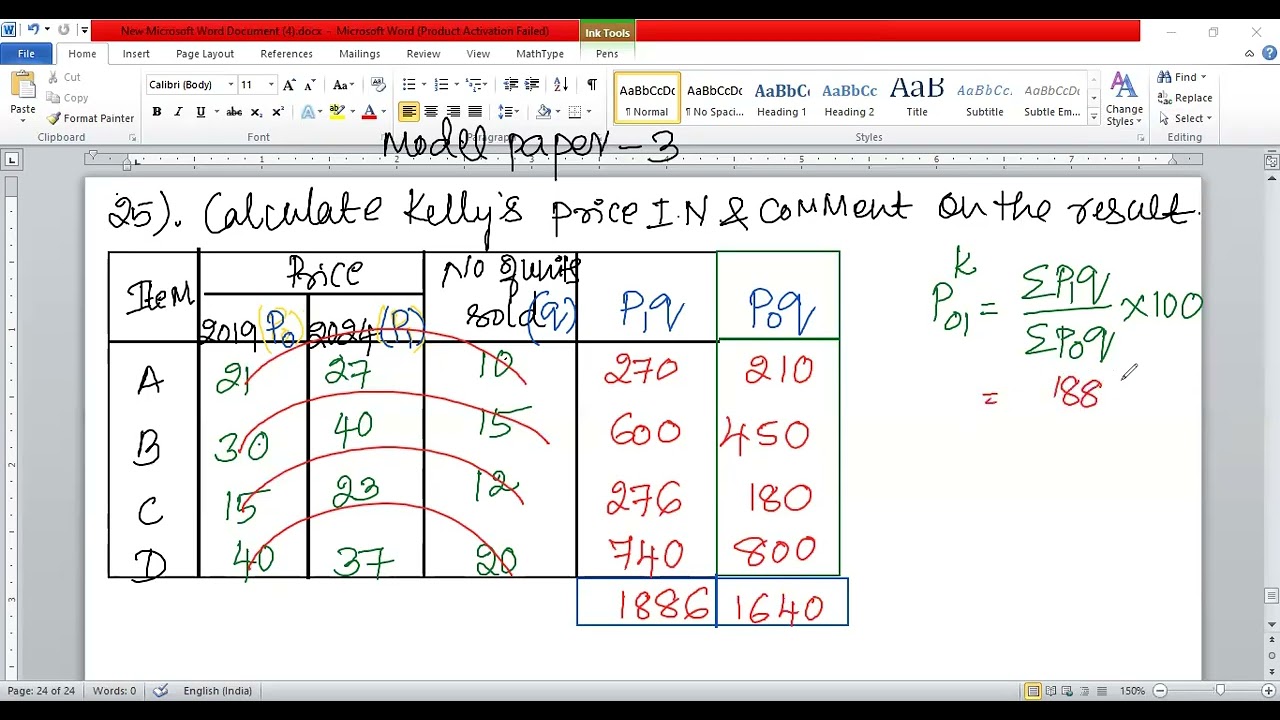 New Microsoft Word Document (4).docx - Microsoft Word (Product Activation Failed)
Ink Tools
File Home Insert Page Layout References Mailings Review View MathType Pens
Paste
Cut
Copy
Format Painter
Calibri (Body) 11
B I U abc x₂ x²
AaBbCcDc AaBbCcDc AaBbC AaBbCc AaB AaBbCc. AaBbCcDc
¶ Normal ¶ No Spaci... Heading 1 Heading 2 Title Subtitle Subtle Em...
Change Styles
Find
Replace
Select
Clipboard Font Paragraph Styles Editing
Model paper - 3
1 2 3 4 5 6 7
25). Calculate Kelly's price I.N & comment on the result.
Item Price No of units sold (q) P₁q P₀q
2019 (P₀) 2024 (P₁)
A 21 27 10 270 210
B 30 40 15 600 450
C 15 23 12 276 180
D 40 37 20 740 800
1886 1640
P₀₁ᴷ = ΣP₁q / ΣP₀q × 100
= 188
Page: 24 of 24 Words: 0 English (India) 150%